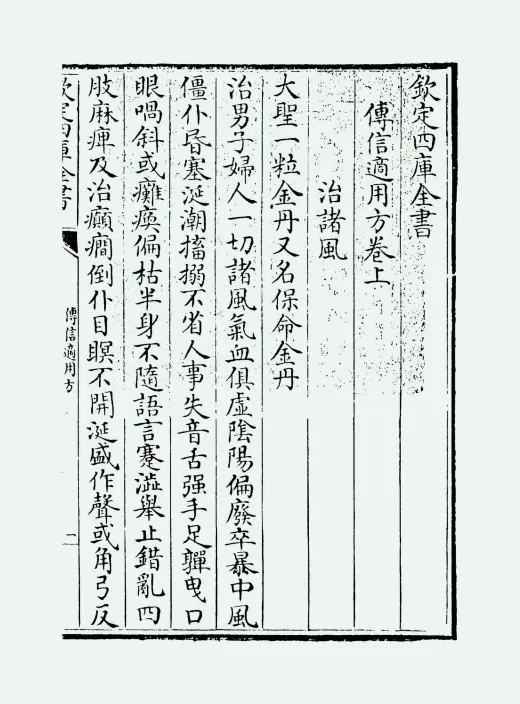 欽定四庫全書
傳信適用方卷上
治諸風
大聖一粒金丹又名保命金丹
治男子婦人一切諸風氣血俱虛陰陽偏廢卒暴中風
僵仆昏塞涎潮搐搦不省人事失音舌强手足嚲曳口
眼喎斜或癱瘓偏枯半身不隨語言蹇澁舉止錯亂四
肢麻痺及治癲癇倒仆目瞑不開涎盛作聲或角弓反
欽定四庫全書
傳信適用方
二